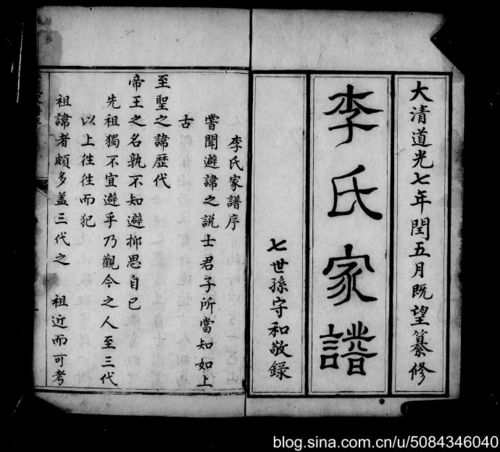 大清道光七年閏五月既望纂修
李氏家譜
七世孫守和敬錄
李氏家譜序
嘗聞避諱之說士君子所當知如上
古
至聖之諱歷代
帝王之名孰不知避抑思自己
先祖獨不宜避乎乃觀今之人至三代
以上徃徃而犯
祖諱者頗多盖三代之 祖近而可考
blog.sina.com.cn/u/5084346040